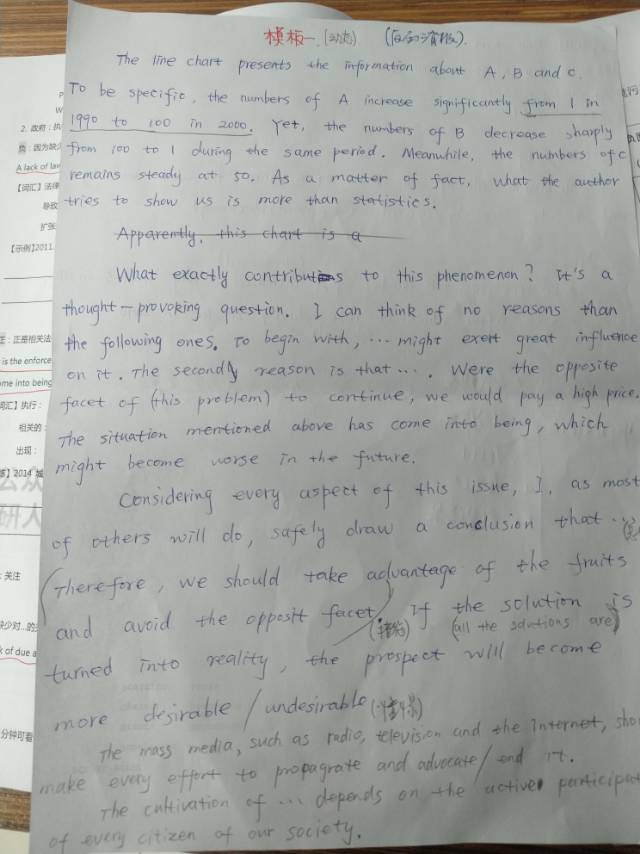 模板一 (动态) 
The line chart presents the information about A, B and c.
To be specific, the numbers of A increase significantly from 1 in
1990 to 100 in 2000. Yet, the numbers of B decrease sharply
from 100 to 1 during the same period. Meanwhile, the numbers of c
remains steady at 50. As a matter of fact, what the author
tries to show us is more than statistics.
Apparently, this chart is a
What exactly contributes to this phenomenon? It's a
thought-provoking question. I can think of no reasons than
the following ones. To begin with, ... might exert great influence
on it. The secondly reason is that .... Were the opposite
facet of (this problem) to continue, we would pay a high price.
The situation mentioned above has come into being, which
might become worse in the future.
Considering every aspect of this issue, I, as most
of others will do, safely draw a conclusion that ...
(Therefore, we should take advantage of the fruits
and avoid the opposit facet) If the solution is
(措施) (all the solutions are)
turned into reality, the prospect will become
more desirable / undesirable. (情景)
The mass media, such as radio, television and the Internet, sho
make every effort to propagrate and advocate / end it.
The cultivation of ... depends on the active participat
of every citizen of our society.
2. 政府：执
A lack of law
【词汇】法律
导致
扩张
【示例】2011.
正是相关法
is the enforce
me into being
词汇】执行：
相关的：
出现：
】2014
研人
：关注
缺少对...的
k of due a
分钟可看